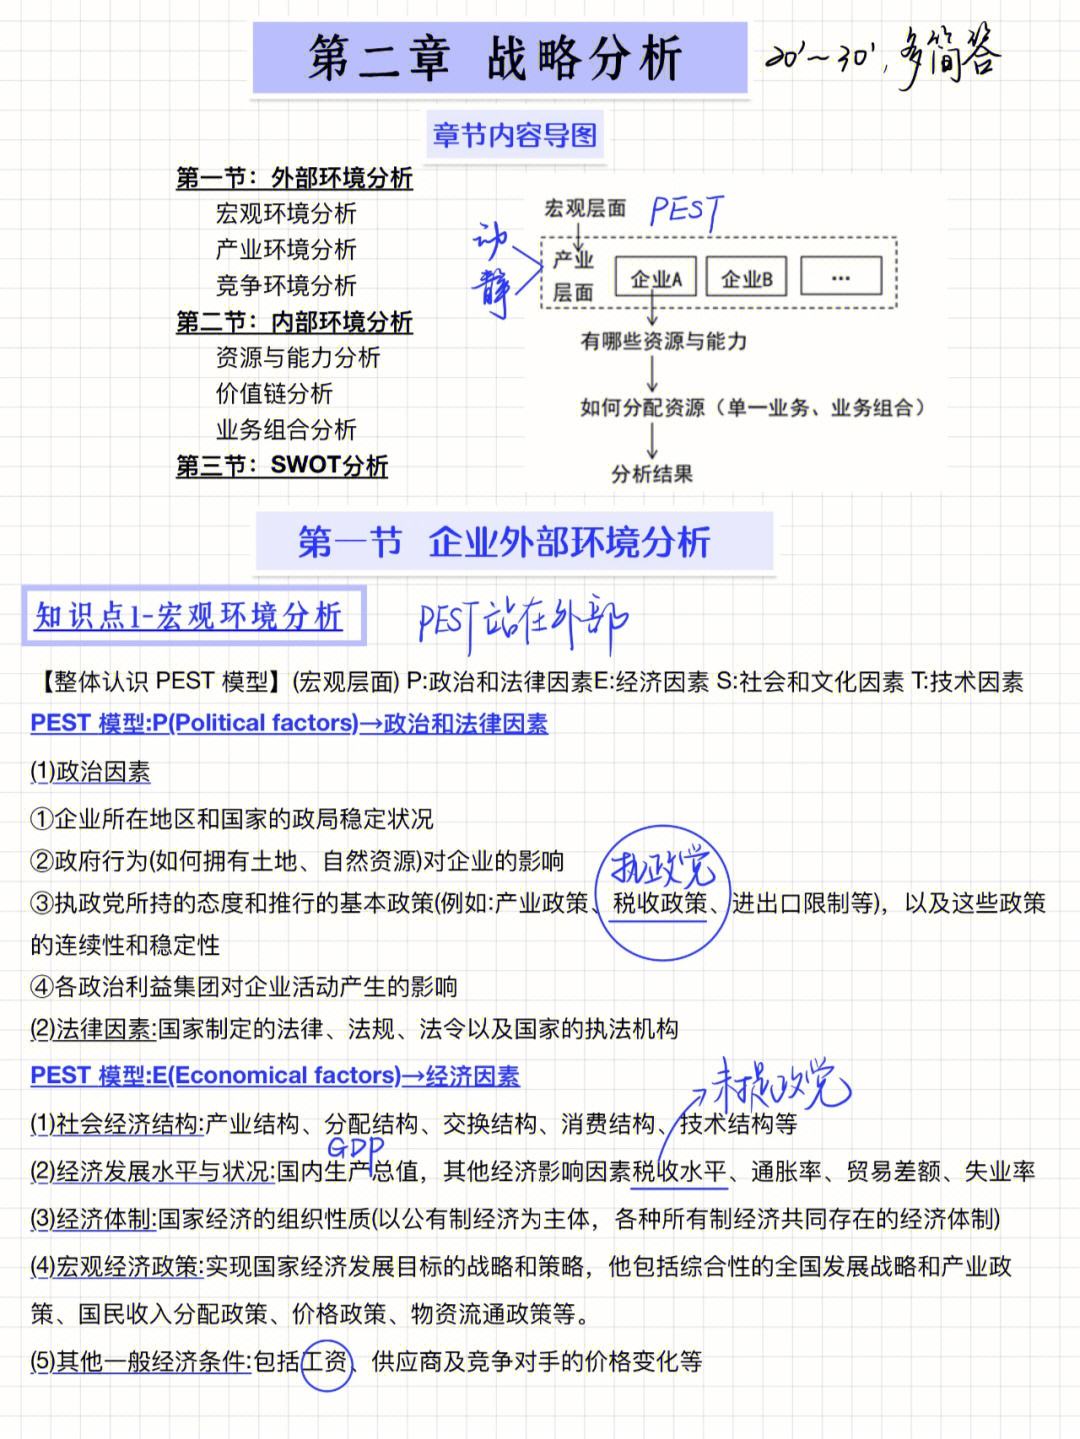 第二章 战略分析 20'~30',多简答
章节内容导图
第一节：外部环境分析
宏观环境分析
产业环境分析
竞争环境分析
第二节：内部环境分析
资源与能力分析
价值链分析
业务组合分析
第三节：SWOT分析
宏观层面 PEST
动
静
产业
层面
企业A 企业B ...
有哪些资源与能力
如何分配资源（单一业务、业务组合）
分析结果
第一节 企业外部环境分析
知识点1-宏观环境分析 PEST站在外部
【整体认识 PEST 模型】(宏观层面) P:政治和法律因素E:经济因素 S:社会和文化因素 T:技术因素
PEST 模型:P(Political factors)→政治和法律因素
(1)政治因素
①企业所在地区和国家的政局稳定状况
②政府行为(如何拥有土地、自然资源)对企业的影响
执政党
③执政党所持的态度和推行的基本政策(例如:产业政策、税收政策、进出口限制等)，以及这些政策
的连续性和稳定性
④各政治利益集团对企业活动产生的影响
(2)法律因素:国家制定的法律、法规、法令以及国家的执法机构
PEST 模型:E(Economical factors)→经济因素
未提政党
(1)社会经济结构:产业结构、分配结构、交换结构、消费结构、技术结构等
GDP
(2)经济发展水平与状况:国内生产总值，其他经济影响因素税收水平、通胀率、贸易差额、失业率
(3)经济体制:国家经济的组织性质(以公有制经济为主体，各种所有制经济共同存在的经济体制)
(4)宏观经济政策:实现国家经济发展目标的战略和策略，他包括综合性的全国发展战略和产业政
策、国民收入分配政策、价格政策、物资流通政策等。
(5)其他一般经济条件:包括工资、供应商及竞争对手的价格变化等